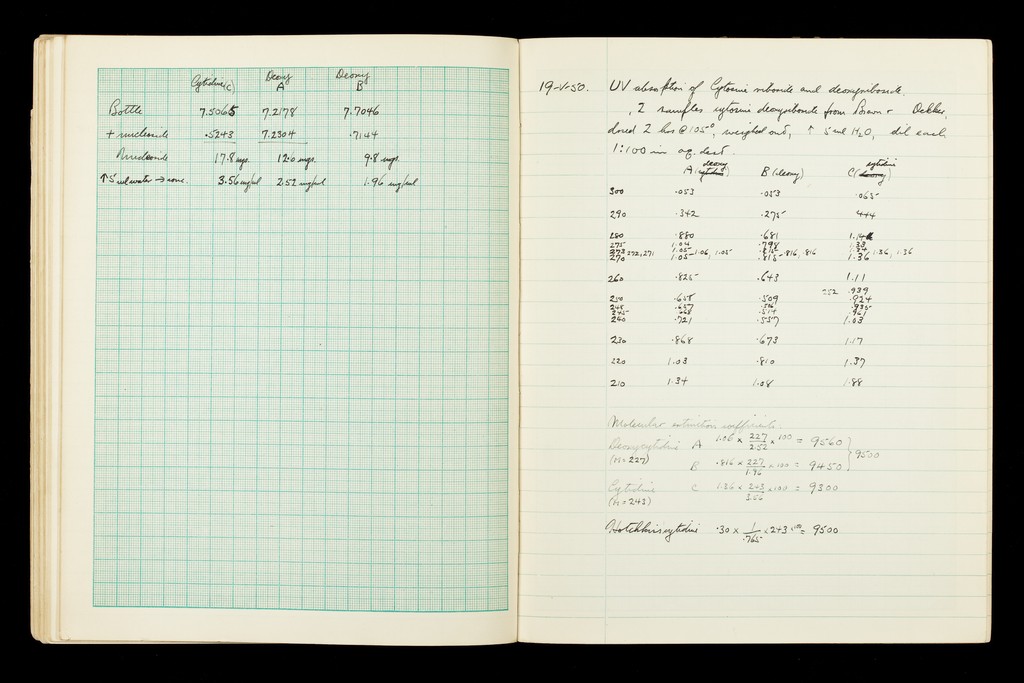 Cytidine (C) Deoxy A Deoxy B
Bottle 7.5065 7.2178 7.7046
+ nucleoside .5243 7.2304 .7144
Nucleoside 17.8 mgs. 12.6 mgs. 9.8 mgs.
↑ 5 ml water → conc. 3.56 mg/ml 2.52 mg/ml 1.96 mg/ml
19-V-50. UV absorption of Cytosine riboside and deoxyriboside.
, 2 samples cytosine deoxyriboside from Brown + Dekker,
dried 2 hrs @ 105°, weighed out, ↑ 5 ml H2O, dil each
1:100 in aq. dest.
A (deoxy cytidine) B (deoxy) C (cytidine deoxy)
300 .053 .053 .065
290 .342 .275 .444
280 .880 .681 1.14
275 1.04 .798 1.33
273 272, 271 1.05 - 1.06, 1.05 .815 - .816, .816 1.34 1.36, 1.36
270 1.05 .815 1.36
260 .825 .643 1.11
252 .939
250 .658 .509 .924
248 .657 .506 .935
245 .668 .514 .961
240 .721 .557 1.03
230 .868 .673 1.17
220 1.03 .810 1.37
210 1.34 1.08 1.88
Molecular extinction coefficients.
Deoxycytidine A 1.06 x 227/2.52 x 100 = 9560
(M = 227) B .816 x 227/1.96 x 100 = 9450 } 9500
Cytidine C 1.36 x 243/3.56 x 100 = 9300
(M = 243)
Hotchkiss cytidine .30 x 1/.765 x 243 x 100 = 9500